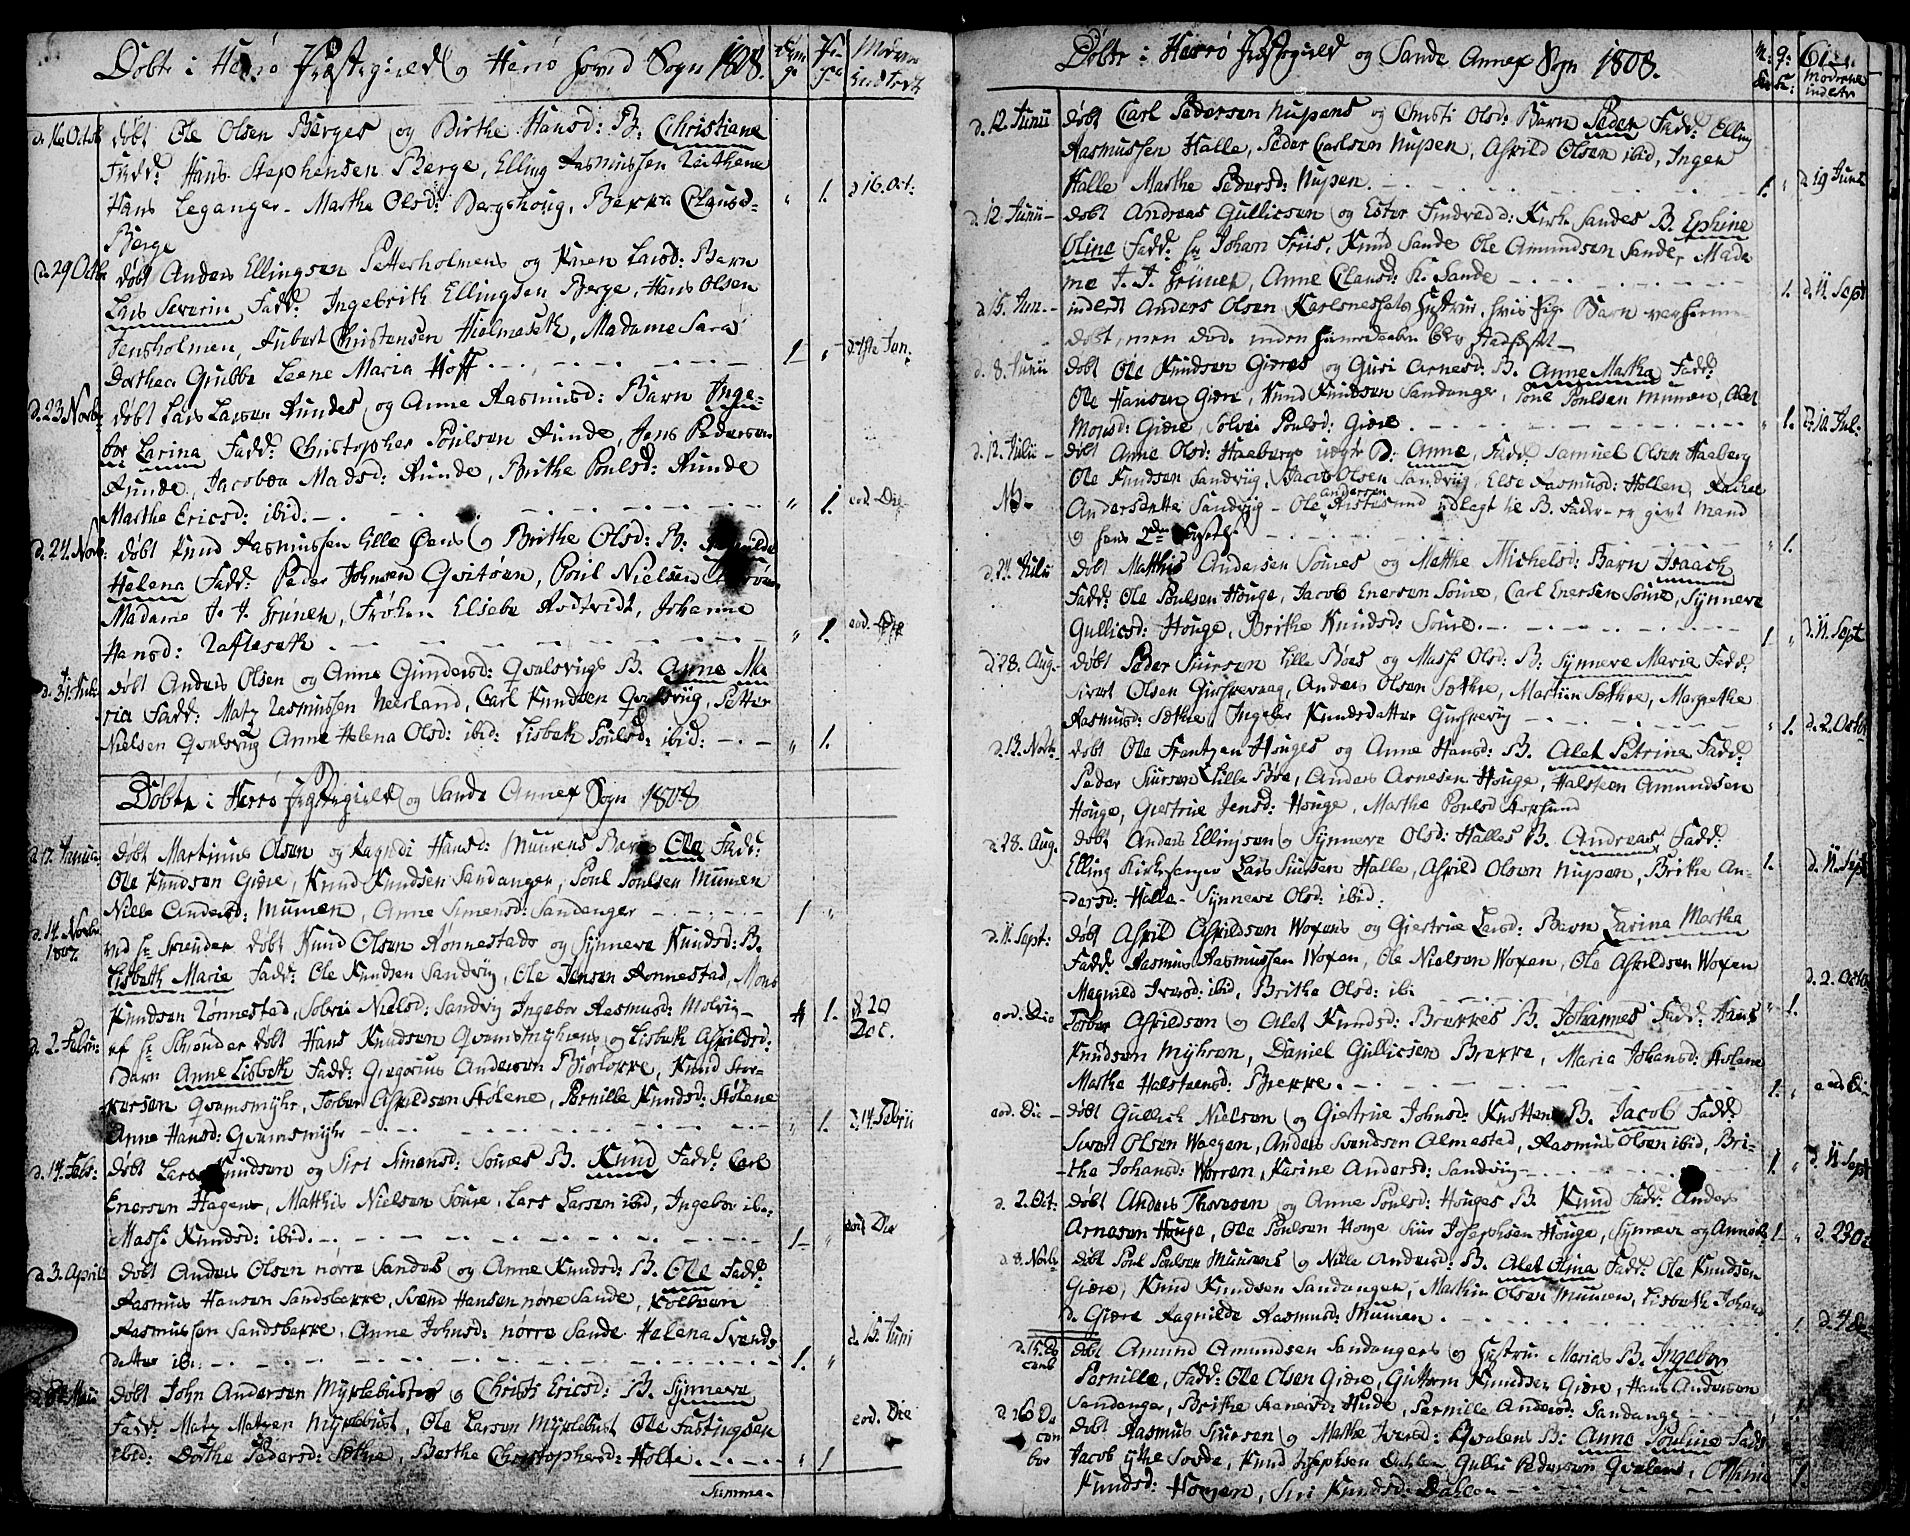 Döbte i Herrö Præstegield og Herrö hoved Sogn 1808.
Moderens
indledt
d. 16 Octob: döbt Ole Olsen Berges og Birthe Hansd: B. Christiane
Fadd: Hans Stephensen Berge, Elling Rasmussen
Hans Leganger - Marthe Olsd: Bergshoug, Clausd-
Berge
1. d 16. Oct:
d. 29 Octbr döbt Anders Ellingsen Petterholmens og Karen Larsd: Barn
Lars Severin Fadd: Ingebrith Ellingsen Berge, Hans Olsen
Jensholmen, Hubert Christensen Hielmeseth, Madame Sara
Dorthea Grubbe Leene Maria Hoff
1
d. 23 Novb: döbt Lars Larsen Rundes, og Anne Rasmusd: Barn Inge-
bor Larina Fadd: Christopher Poulsen Runde, Jens Pedersen
Runde, Jacobea Madsd: Runde, Brithe Poulsd: Runde
Marthe Ericsd: ibid.
1. eod. Die
d. 24. Novb: döbt Knud Rasmussen Lille Öens og Brithe Olsd: B:
Helena Fadd: Peder Johnsen Qvitöen, Poul Nielsen
Madame J. J. Grüner, Fröken Elsebe Rodtvidt, Johanne
Hansd: Rafteseth
1. eod. Die
d. 31 döbt Anders Olsen og Anne Gundersd: Qvalsvigs B. Anne Ma
ria Fadd: Matz Rasmussen Neerland, Carl Knudsen Qvalsviig, Petter
Nielsen Qvalsvig Anne Helena Olsd: ibid: Lisbeth Poulsd: ibid:
1.
Döbte i Herrö Præstegield og Sande Annex Sogn 1808
d 17. Janua: döbt Martinus Olsen og Ragndi Hansd: Muurens Barn Ole Fadd:
Ole Knudsen Giöre, Knud Knudsen Sandanger, Poul Poulsen Mumen
Nille Andersd: Mumen, Anne Simensd: Sandanger
1
d. 14 Novbr 1807. ved Hr Schrender döbt Knud Olsen Rönnestads og Synneve Knudsd: B.
Lisbeth Marie Fadd: Ole Knudsen Sandvig, Ole Jensen Rönnestad, Mons
Knudsen Rönnestad, Solvei Nielsd: Sandvig Ingebor Rasmusd: Molvig
1. d 20 Dec.
d. 2 Febru: af Hr Schrender döbt Hans Knudsen Qvamsmyhrens og Lisbeth Askildsd:
Barn Anne Lisbeth Fadd: Gregorius Andersen Biörlokke, Knud Stor-
kersen Qvamsmyhr, Torber Askildsen Hölene, Pernille Knudsd: Hölene
Anne Hansd: Qvamsmyhr
1. d 14. Febrii
d. 14. Feb: döbt Lars Knudsen og Siri Simensd: Soures B. Knud Fadd: Carl
Enersen Hagen, Matthis Nielsen Soure, Lars Larsen ibid, Ingebor ib:
Massi Knudsd: ibid.
1 eod Die
d 3. April döbt Anders Olsen nörre Sandes og Anne Knudsd: B. Ole Fadd:
Rasmus Hansen Sandsbakke, Svend Hansen nörre Sande, Kolbeen
Rasmussen Sandsbakke, Anne Johnsd: nörre Sande Helena Svends
datter ib:
1. d. 15. Juni
d Maii döbt John Andersen Myklebustes og Christi Ericsd: B. Synneve
Fadd: Matz Matzen Myklebust, Ole Larsen Myklebust Ole Fastingsen
ibid: Dorthe Pedersd: Sæthre, Berthe Christophersd: Holte
1 eod. Die
Summa.
Döbte i Herrö Præstegield og Sande Annex Sogn 1808.
61
Moderens
indledt
d. 12 Junii döbt Carl Pedersen Nupens og Christi Olsd: Barn Peder Fadd: Elling
Rasmussen Halle, Peder Carlsen Nupen, Askild Olsen ibid, Inger
Halle Marthe Pedersd: Nupen.
1. d 19 Junii
d. 12 Junii döbt Andreas Gullicsen og Ester Findredd: Kirke Sandes B. Ephine
Oline Fadd: Hr Johan Friis, Knud Sande Ole Amundsen Sande, Mada
me J. J. Grüner, Anne Clausd: K. Sande
1. d. 11. Sept
d 15. Jun. indledt Anders Olsen Karlsnessets Hustrue, hvis Pige Barn var hiemme
döbt, men död, inden hiemmedaaben blev stadfæst
d. 8. Junii döbt Ole Knudsen Giöres og Guri Arnesd: B. Anne Martha Fadd:
Ole Hansen Giöre, Knud Knudsen Sandanger, Poul Poulsen Mumen, Alet
Monsd: Giöre, Solvei Poulsd: Giöre.
1. d: 10. Jul:
d. 12. Julii döbt Anne Olsd: Haabergs uægte B: Anne, Fadd: Samuel Olsen Haaberg
Ole Knudsen Sandviig, Jacob Olsen Sandviig, Else Rasmusd: Hollen, Rachel
NB. Andersdatter Sandviig - Ole Andersen Ristesund udlagt til B. Fader - er givt Mand
og hans 2den
1.
d. 24 Julii döbt Matthis Andersen Soures og Mathe Michelsd: Barn Isaach
Fadd: Ole Poulsen Houge, Jacob Enersen Soure, Carl Enersen Soure, Synneve
Gullicsd: Houge, Brithe Knudsd: Soure.
1 d. 11. Sept
d. 28. Aug. döbt Peder Siursen Lille Böes og Massi Olsd: B. Synneve Maria Fadd:
Sivert Olsen Gurskevaag, Anders Olsen Sæthre, Martin Sæthre, Margrethe
Rasmusd: Sæthre, Ingebor Knudsdatter Gurskevig
1. d. 2. Octobr
d. 13. Novb. döbt Ole Frantzen Houges og Anne Hansd: B. Alet Petrine Fadd:
Peder Siursen Lille Böe, Anders Arnesen Houge, Halsteen Amundsen
Houge, Giertrue Jensd: Houge, Marthe Poulsd
d. 28 Aug. döbt Anders Ellingsen og Synneve Olsd: Halles B. Andreas Fadd:
Elling Kirkesanger Lars Siursen Halle, Askild Olsen Nupen, Brithe An-
dersd: Halle - Synneve Olsd: ibid.
1. d. 11. Sept
d. 11. Sept: döbt Askild Askildsen Woxens og Giertrue Larsd: Barn Larina Martha
Fadd: Rasmus Rasmussen Woxen, Ole Nielsen Woxen, Ole Askildsen Woxen
Magnild Iversd: ibid, Brithe Olsd: ib:
1. d. 2. Octo
eod. Die Torber Askildsen og Alet Knudsd: Brekkes B. Johannes Fadd: Hans
Knudsen Myhren, Daniel Gullicsen Brekke, Maria Johansd: Hölene
Marthe Halsteensd: Brekke.
1. eod Di
eod. Die döbt Gullich Nielsen og Giertrue Johnsd: B. Jacob Fadd:
Sivert Olsen Waagen, Anders Svendsen Almestad, Rasmus Olsen ibid, Bri-
the Johansd: Worren, Karine Andersd: Sandvig
1. d. 11 Sept
d. 2. Oct: döbt Anders Thoresen og Anne Poulsd: Houges B. Knud Fadd: Anders
Arnesen Houge, Ole Poulsen Houge Siur Josephsen Houge, Synneve og Anne ib:
1 d. 23 Oc
d 8. Novb: döbt Poul Poulsen Muurens og Nille Andersd: B. Alet Olina Fadd: Ole Knudsen
Giöre, Knud Knudsen Sandanger, Marthin Olsen Mumen, Lisbeth Johans
d. Giöre Ragnilde Rasmusd: Mumen.
1. d. 4 de
d. 15. De cemb döbt Amund Amundsen Sandangers og Hustrue Marias B. Ingebor
Pernille, Fadd: Ole Olsen Giöre, Guttorm Knudsen Giöre, Hans Andersen
Sandanger, Brithe Hude, Pernille Andersd: Sandange
1
d. 26 De cem ber döbt Rasmus Siursen og Mathe Iversd: Qvalens B: Anne Pouline Fadd:
Jacob ytre Sovde, Knud Josephsen Dahlen Gullic Pedersen Qvalens,
Knudsd: Hougen, Siri Knudsd: Dahlen
1.